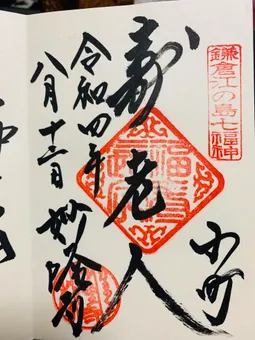 鎌倉江の島七福神
小町
寿老人
令和四年
八月十二日
妙隆寺